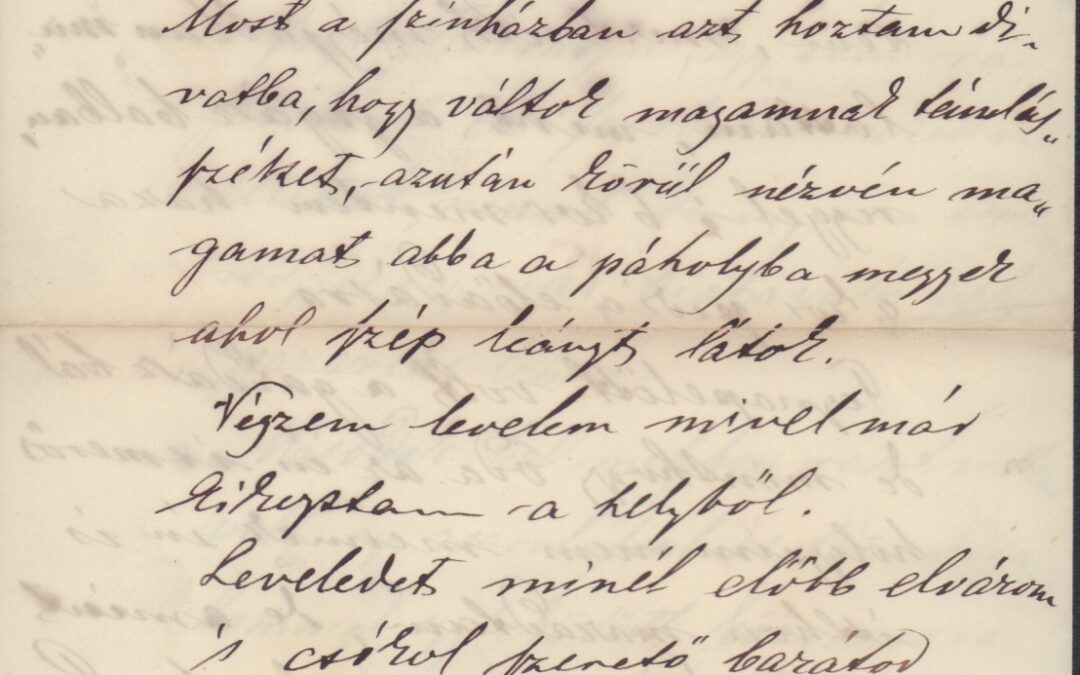 Most a színházban azt hoztam di-
vatba, hogy váltok magamnak támlás„
széket, azután körül nézvén ma„
gamat abba a páholyba megyek
ahol szép leányt látok.
Végzem levelem mivel már
kikoptam a helyből.
Leveledet minél előbb elvárom
's csókol szerető barátod